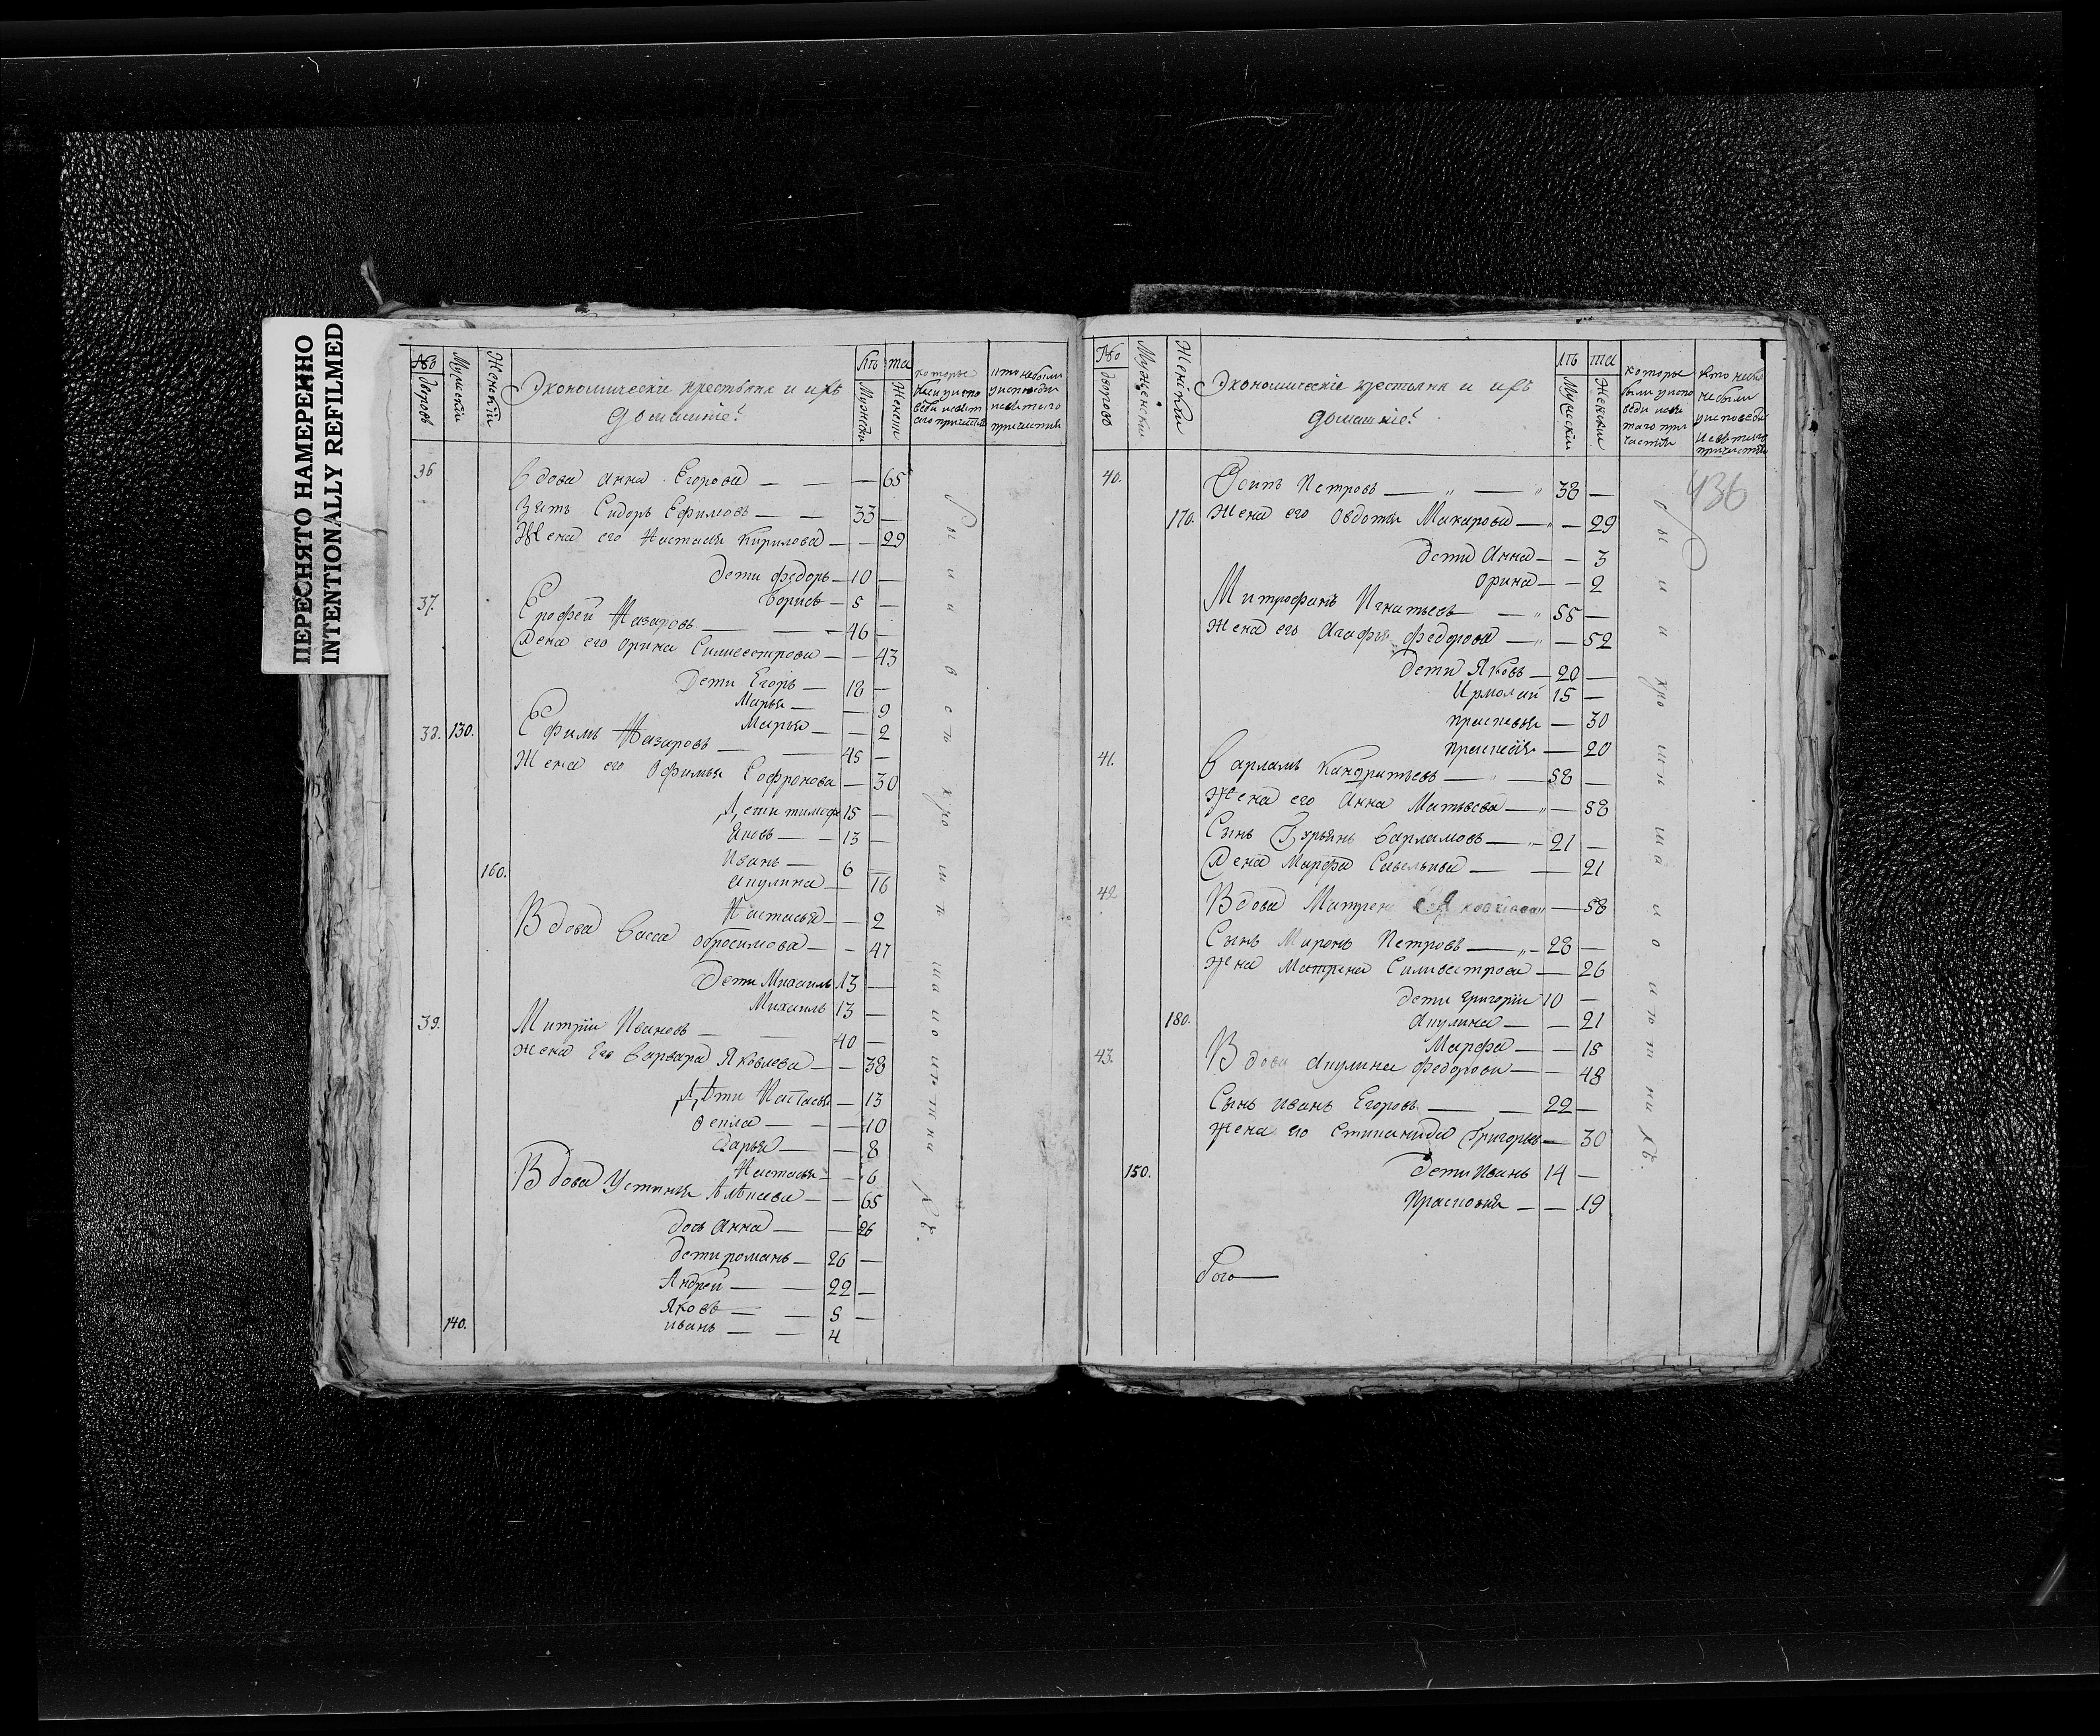 ПЕРЕСНЯТО НАМЕРЕННО
INTENTIONALLY REFILMED
№
дворовъ
Мужескiи
Женскiи
Экономически крестьяна и ихъ
домашнiе
Лѣ та
Мужески
Женски
которые
были у испо
веди
36 Вдова Анна Егорова — — — 65
Зять Сидоръ Ефимовъ — — 33 —
Жена его Настасья Кирилова — — 29
Дети Федоръ — 10 —
Борисъ — 5 —
37. Ерофей Назаровъ — — 46 —
Жена его Орина Силивестрова — — 43
Дети Егоръ — 18 —
Марья — — 9
Марья — — 2
38. 130. Ефимъ Назаровъ — — 45 —
Жена его Офимья Софронова — 30
Дети тимофе 15 —
Яковъ — 13 —
Иванъ — 6 —
160. Акулина — 16
Настасья — — 2
Вдова Васса Обросимова — — 47
Дети Михаилъ 13 —
Михаилъ 13 —
39. Митрiи Ивановъ — — 40 —
жена Его Варвара Яковлева — — 38
Дѣти Настасья — 13
Фекла — — 10
Дарья — — 8
Настасья — — 6
Вдова Устинья — — 65
дочь Анна — — 26
дети романъ — 26 —
Андреи — — 22 —
Яковъ — — 5 —
140. иванъ — — 4
№
дворовъ
Мужескiи
Женскiи
Экономическiе крестьяна и ихъ
домашнiе
Лѣ та
Мужескiи
Женскiи
которые
были у испо
веди и свя
таго при
частiя
436
40. Осипъ Петровъ — „ — „ 38 —
170. Жена его Овдотья Макарова — „ — 29
Дети Анна — — 3
Орина — — 2
Митрофанъ Игнатьевъ — „ 55 —
Жена его Агафья Федорова — „ — 52
Дети Яковъ — 20 —
Ирмолаи 15 —
прасковья — 30
прасковья — 20
41. Варламъ Кандратьевъ — „ — 58 —
Жена его Анна Матвеева — „ — 58
Сынъ Варламовъ — „ 21 —
Жена Марфа Савельива — — 21
42 Вдова Матрена — 58
Сынъ Миронъ Петровъ — „ 28 —
жена Матрена Силивестрова — 26
дети григорiи 10 —
180. Акулина — — 21
Марфа — — 15
43. Вдова Акулина Федорова — — 48
Сынъ иванъ Егоровъ — — 22 —
Жена его Стипанида Григорьев — 30
150. Дети Иванъ 14 —
Прасковия — — 19